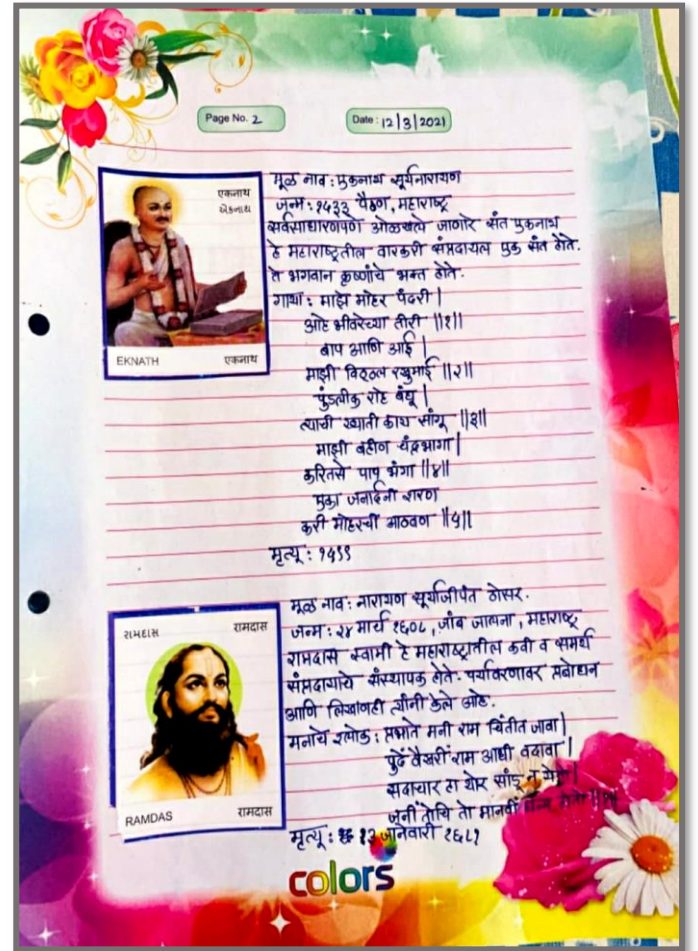 Page No. 2
Date : 12/3/2021
एकनाथ
એકનાથ
EKNATH
एकनाथ
मूळ नाव : एकनाथ सूर्यनारायण
जन्म : १५३३ पैठण, महाराष्ट्र
सर्वसाधारणपणे ओळखले जाणारे संत एकनाथ
हे महाराष्ट्रातील वारकरी संप्रदायाल एक संत होते.
ते भगवान कृष्णांचे भक्त होते.
गाथा : माझे मोहर पंढरी |
आहे भीवरेच्या तीरी ||१||
बाप आणि आई |
माझी विठ्ठल रखुमाई ||२||
पुंडलीक राहे बंधू |
त्याची ख्याती काय सांगू ||३||
माझी बहीण चंद्रभागा |
करितसे पाप भंगा ||४||
एका जनार्दनी शरण
करी मोहरची आठवण ||५||
मृत्यू : १५९९
રામદાસ
रामदास
RAMDAS
रामदास
मूळ नाव : नारायण सूर्याजीपंत ठोसर.
जन्म : २४ मार्च १६०८, जांब जालना, महाराष्ट्र
रामदास स्वामी हे महाराष्ट्रातील कवी व समर्थ
संप्रदायाचे संस्थापक होते. पर्यावरणावर प्रबोधन
आणि लिखाणही त्यांनी केले आहे.
मनाचे श्लोक : प्रभाते मनी राम चिंतीत जावा |
पुढें वैखरीं राम आधी वदावा |
सदाचार हा थोर सांडू न येतो |
जनीं तोचि तो मानवी धन्य होतो
मृत्यू : १३ जानेवारी १६८१
colors